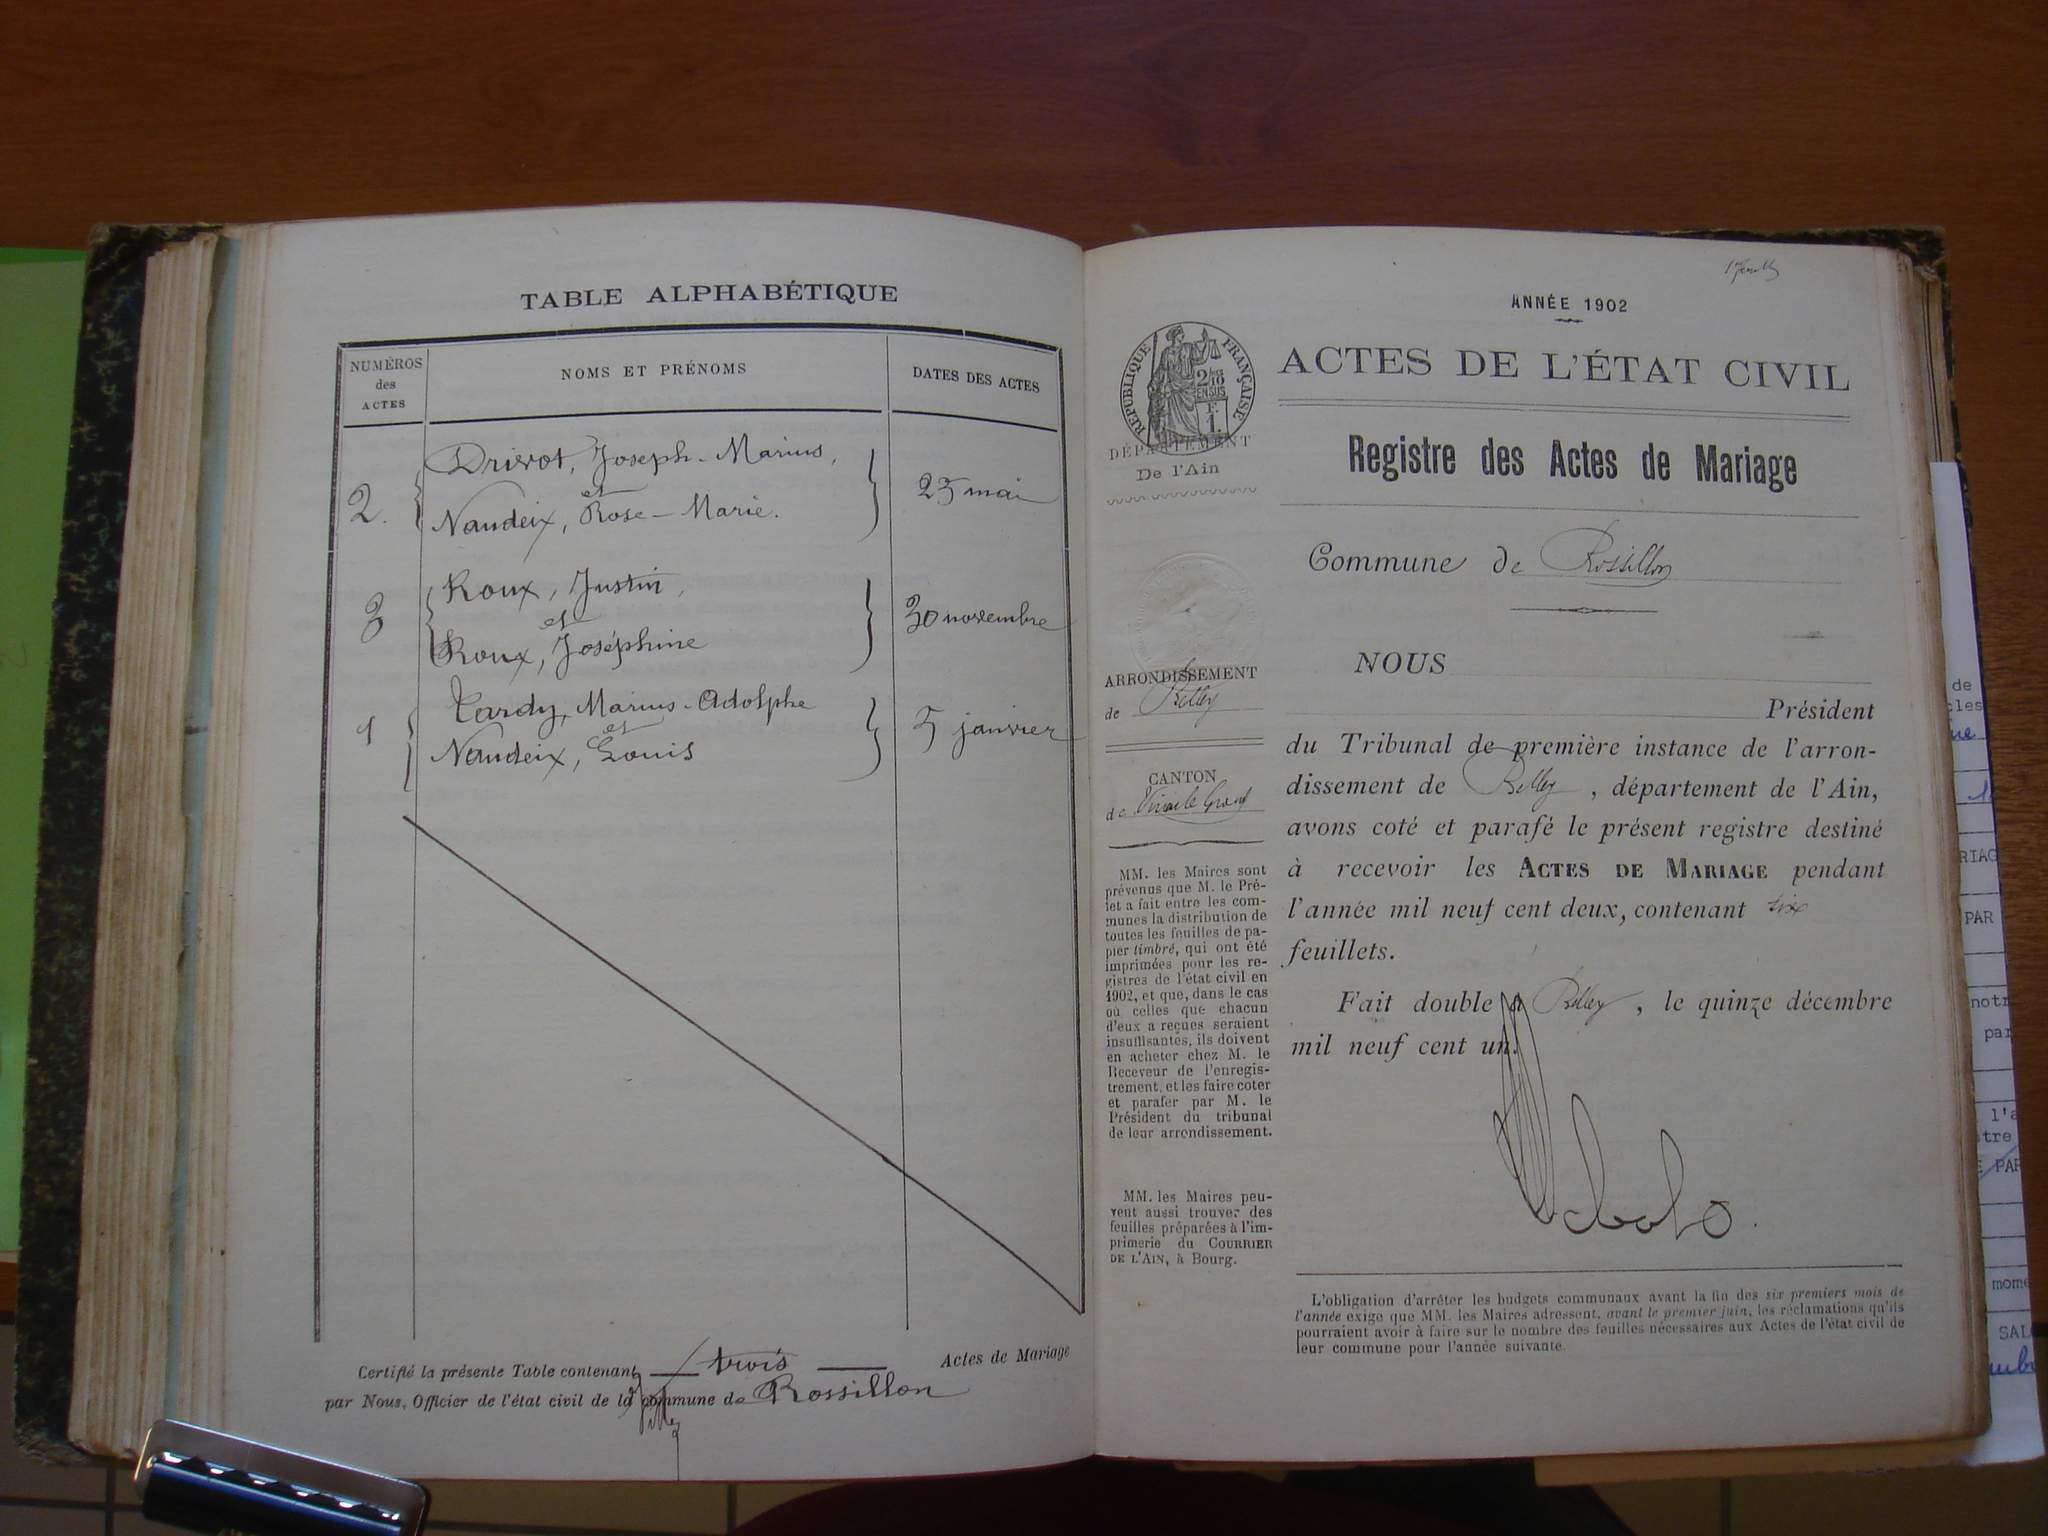 TABLE ALPHABÉTIQUE
NUMÉROS des ACTES
NOMS ET PRÉNOMS
DATES DES ACTES
2.
Drivot, Joseph-Marius,
et
Naudeix, Rose-Marie.
25 mai
3
Roux, Justin,
et
Roux, Joséphine
30 novembre
1
Tardy, Marius-Adolphe
et
Naudeix, Louis
5 janvier
Certifié la présente Table contenant trois Actes de Mariage
par Nous, Officier de l'état civil de la commune de Rossillon
ANNÉE 1902
ACTES DE L'ÉTAT CIVIL
RÉPUBLIQUE FRANÇAISE
DÉPARTEMENT
De l'Ain
Registre des Actes de Mariage
Commune de Rossillon
ARRONDISSEMENT
de Belley
CANTON
de Virieu le Grand
MM. les Maires sont
prévenus que M. le Pré-
fet a fait entre les com-
munes la distribution de
toutes les feuilles de pa-
pier timbré, qui ont été
imprimées pour les re-
gistres de l'état civil en
1902, et que, dans le cas
où celles que chacun
d'eux a reçues seraient
insuffisantes, ils doivent
en acheter chez M. le
Receveur de l'enregis-
trement, et les faire coter
et parafer par M. le
Président du tribunal
de leur arrondissement.
MM. les Maires peu-
vent aussi trouver des
feuilles préparées à l'im-
primerie du COURRIER
DE L'AIN, à Bourg.
NOUS
Président
du Tribunal de première instance de l'arron-
dissement de Belley, département de l'Ain,
avons coté et parafé le présent registre destiné
à recevoir les ACTES DE MARIAGE pendant
l'année mil neuf cent deux, contenant six
feuillets.
Fait double à Belley, le quinze décembre
mil neuf cent un.
L'obligation d'arrêter les budgets communaux avant la fin des six premiers mois de
l'année exige que MM. les Maires adressent, avant le premier juin, les réclamations qu'ils
pourraient avoir à faire sur le nombre des feuilles nécessaires aux Actes de l'état civil de
leur commune pour l'année suivante.